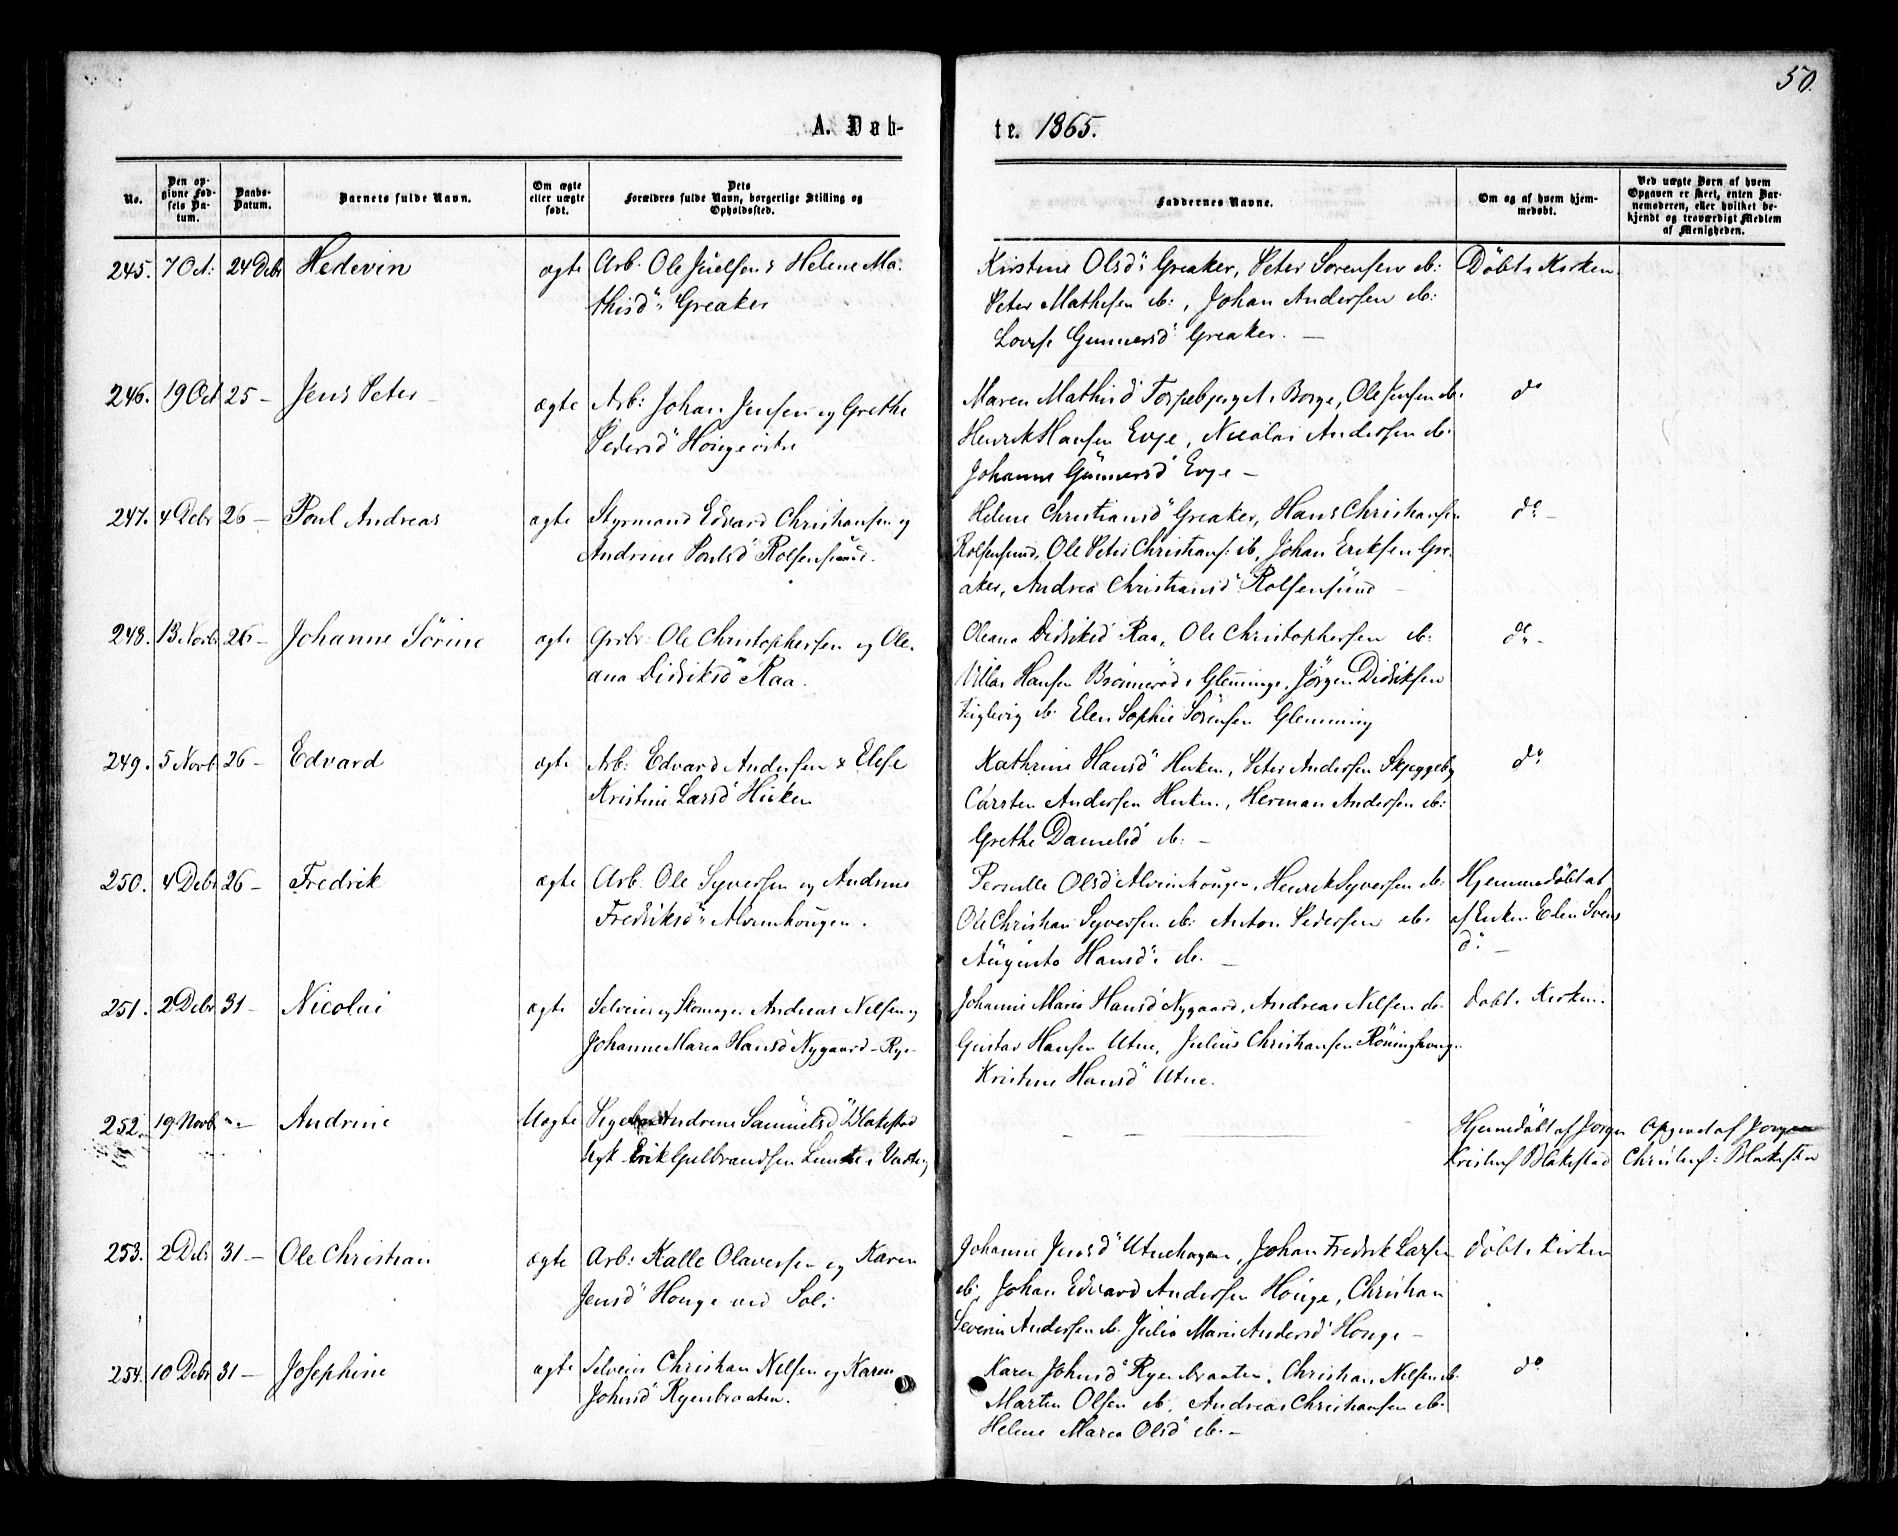 50.
A. Døb-
te. 1865.
No.
Den op-
givne Fød-
sels Da-
tum.
Daabs-
Datum.
Barnets fulde Navn.
Om ægte
eller uægte
født.
Dets
Forældres fulde Navn, borgerlige Stilling og
Opholdssted.
Faddernes Navne.
Om og af hvem hjem-
medøbt.
Ved uægte Børn af hvem
Opgaven er skeet, enten Bar-
nemoderen, eller hvilket be-
kjendt og troværdigt Medlem
af Menigheden.
245. 7 Oct: 24 Debr Hedevin ægte Arb. Ole Juelsen & Helene Ma-
thisd: Greaker
Kirstine Olsd: Greaker, Peter Sørensen ib:
Peter Mathisen ib:, Johan Andersen ib:
Lovise Gunnersd: Greaker. —
Døbt i Kirken
246. 19 Oct 25 — Jens Peter — ægte Arb: Johan Jensen og Grethe
Pedersd Houge østre
Maren Mathisd Torpebjerget i Borge, Ole Jensen ib.
Henrik Hansen Evje, Nicolai Andersen ib.
Johanne Gunnersd Evje —
do
247. 4 Debr 26 — Poul Andreas ægte Styrmand Edvard Christiansen og
Andrine Poulsd Rolfsøsund.
Helene Christiansd Greaker, Hans Christiansen
Rolfsøsund, Ole Peter Christians: ib, Johan Eriksen Gre-
aker, Andrea Christiansd Rolfsøsund —
do —
248. 13 Novb 26 — Johanne Sørine ægte Grdbr: Ole Christophersen og Ole-
ana Didriksd Raa.
Oleana Didriksd Raa, Ole Christophersen ib.
Hansen i Glemminge, Jørgen Didriksen
ib. Elen Sophie Sørensen Glemming
do —
249. 5 Novb. 26 — Edvard ægte Arb: Edvard Andersen & Elise
Kristine Larsd Huken
Kathrine Hansd Huken, Peter Andersen Skjeggeby
Carsten Andersen Huken, Herman Andersen ib:
Grethe Danielsd ib. —
do
250. 4 Debr 26 — Fredrik ægte Arb. Ole Syversen og Andrine
Fredriksd: Alvimhougen.
Pernille Olsd: Alvimhougen, Henrik Syversen ib.
Ole Christian Syversen ib: Anton Pedersen ib.
Augusta Hansd: ib. —
Hjemmedøbt
af Enken Elen Svens
d: —
251. 2 Debr 31 — Nicolai ægte Selveier og Skomager Andreas Nilsen og
Johanne Maria Hansd Nygaard — Rye —
Johanne Maria Hansd Nygaard, Andreas Nilsen ib.
Gustav Hansen Utne, Julius Christiansen
Kristine Hansd Utne.
Døbt i Kirken.
252. 19 Novb " — Andrine Uægte Pige Andrine Samuelsd Blakestad
Ugk Erik Gulbrandsen
— —
Hjemmedøbt af Jørgen
Kristens Blakestad
Opgivet af Jørgen
Christens: Blakestad
253. 2 Debr 31 — Ole Christian ægte Arb: Kalle Olaversen og Karen
Jensd Houge ved Soli
Johanne Jensd Utnehagen, Johan Fredrik Larsen
ib, Johan Edvard Andersen Houge, Christian
Severin Andersen ib. Julia Marie Andersd Houge —
døbt i Kirken
254. 10 Debr 31 — Josephine ægte Selveier Christian Nilsen og Karen
Johnsd Ryenbraaten.
Karen Johnsd Ryenbraaten, Christian Nilsen ib.
Martin Olsen ib, Andreas Christiansen ib.
Helene Maria Olsd ib. —
do